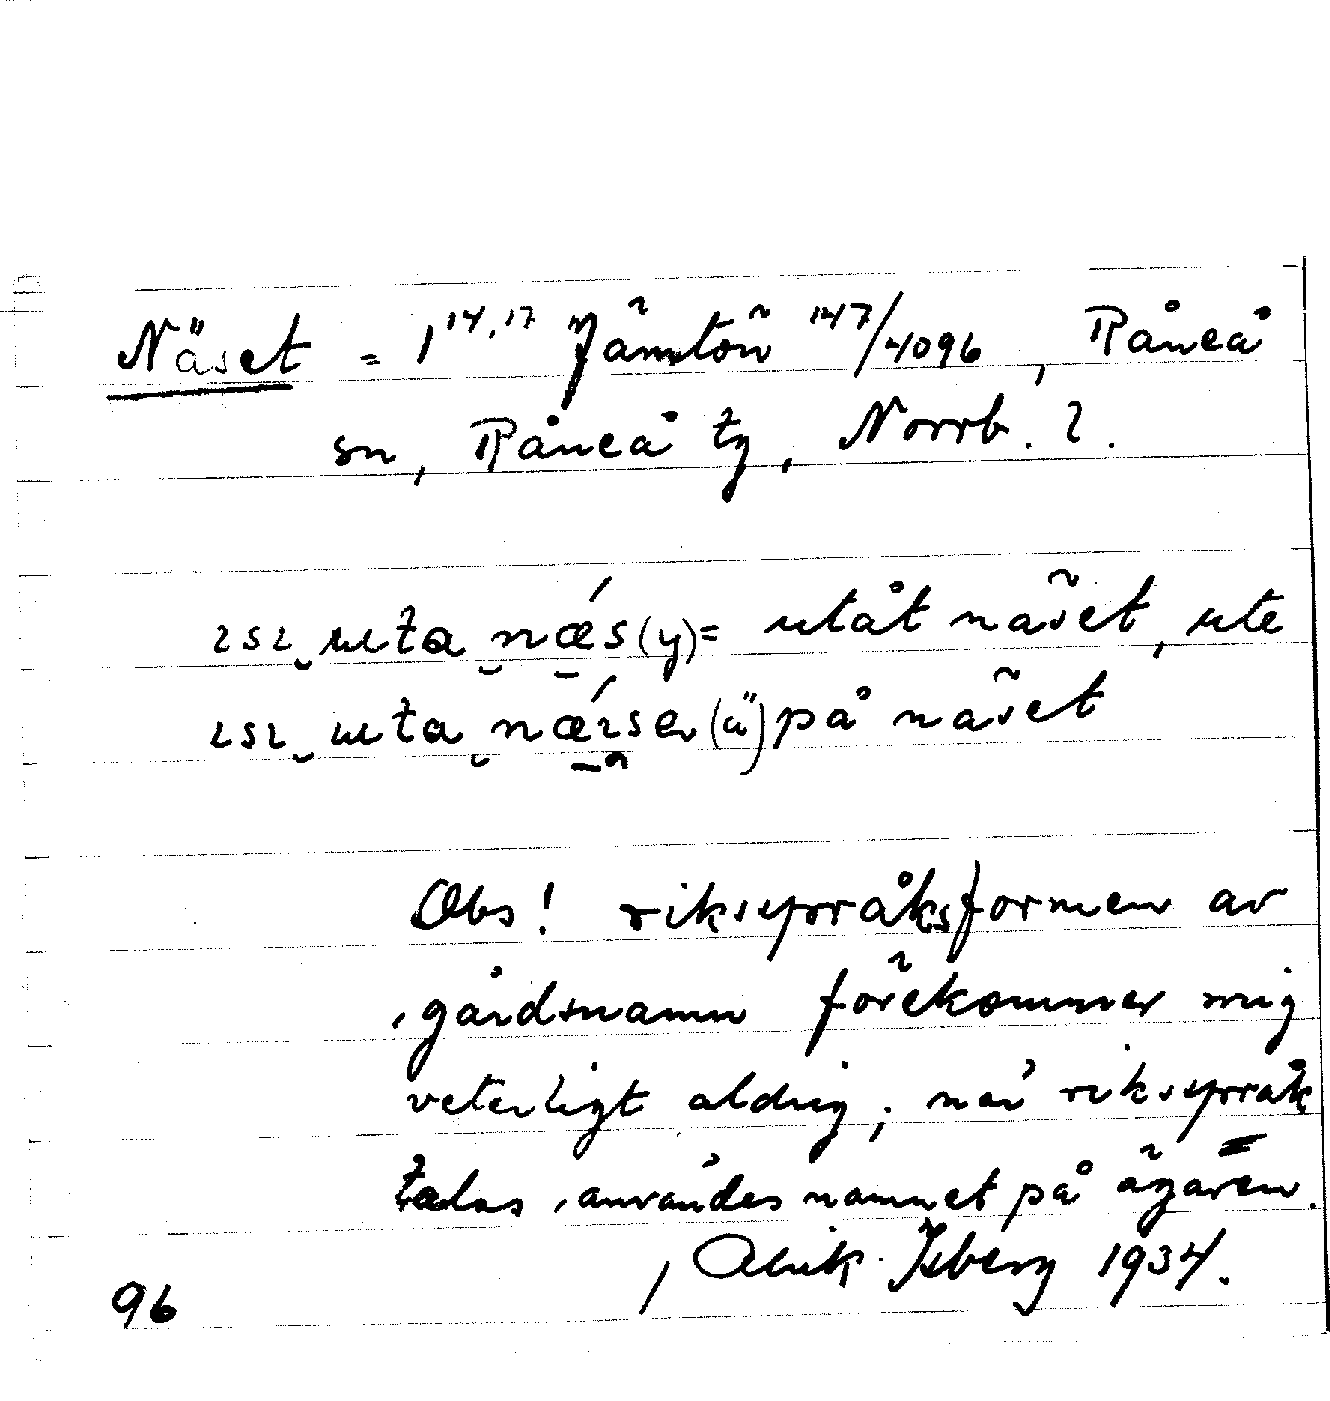 Näset = 1 14,17 Jämtön 147/4096, Råneå
sn, Råneå tg, Norrb. l.
ɩsɩ uta næs (y) = utåt näset, ute
ɩsɩ uta næɩsen (ä) på näset
Obs! riksspråksformen av
gårdsnamn förekommer mig
veterligt aldrig; när riksspråk
talas, användes namnet på ägaren.
Alrik Isberg 1934.
96